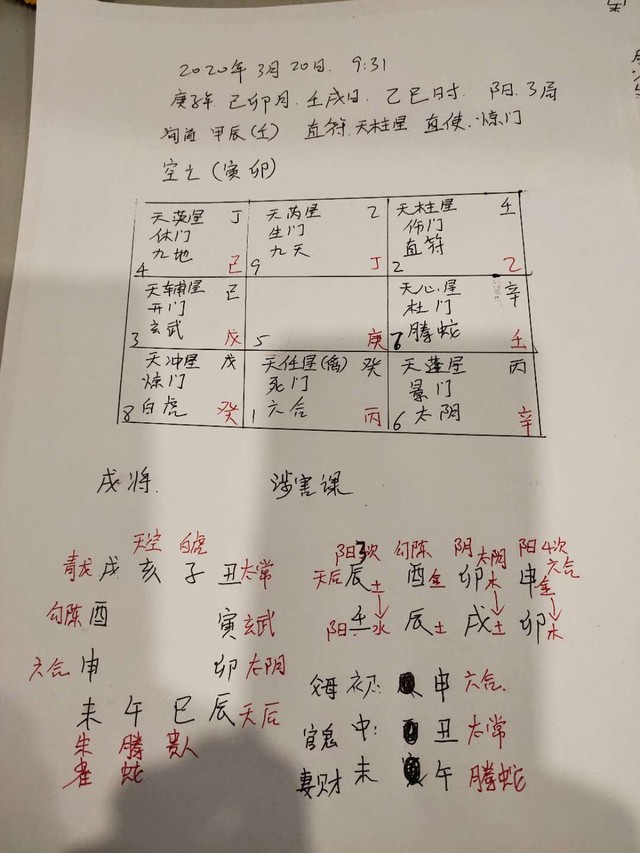 2020年3月20日. 9:31
庚子年. 己卯月. 壬戌日. 乙巳时. 阳.3局
旬首 甲辰(壬) 直符.天柱星 直使.惊门
空亡(寅卯)
天英星 丁 天芮星 乙 天柱星 壬
休门 生门 伤门
九地 九天 直符
4 己 9 丁 2 乙
天辅星 己 天心星 辛
开门 杜门
玄武 螣蛇
3 戊 5 庚 7 壬
天冲星 戊 天任星(禽) 癸 天蓬星 丙
惊门 死门 景门
8 白虎 癸 1 六合 丙 6 太阴 辛
戌将. 涉害课
天空 白虎 阳3次 勾陈 阴太阴 阳4次
青龙 戌 亥 子 丑 太常 天后 辰土 酉金 卯木 申金 六合
勾陈 酉 寅 玄武 阳 壬水 辰土 戌土 卯木
六合 申 卯 太阴 父母 初: 申 六合
未 午 巳 辰 天后 官鬼 中: 丑 太常
朱雀 螣蛇 贵人 妻财 末 午 螣蛇